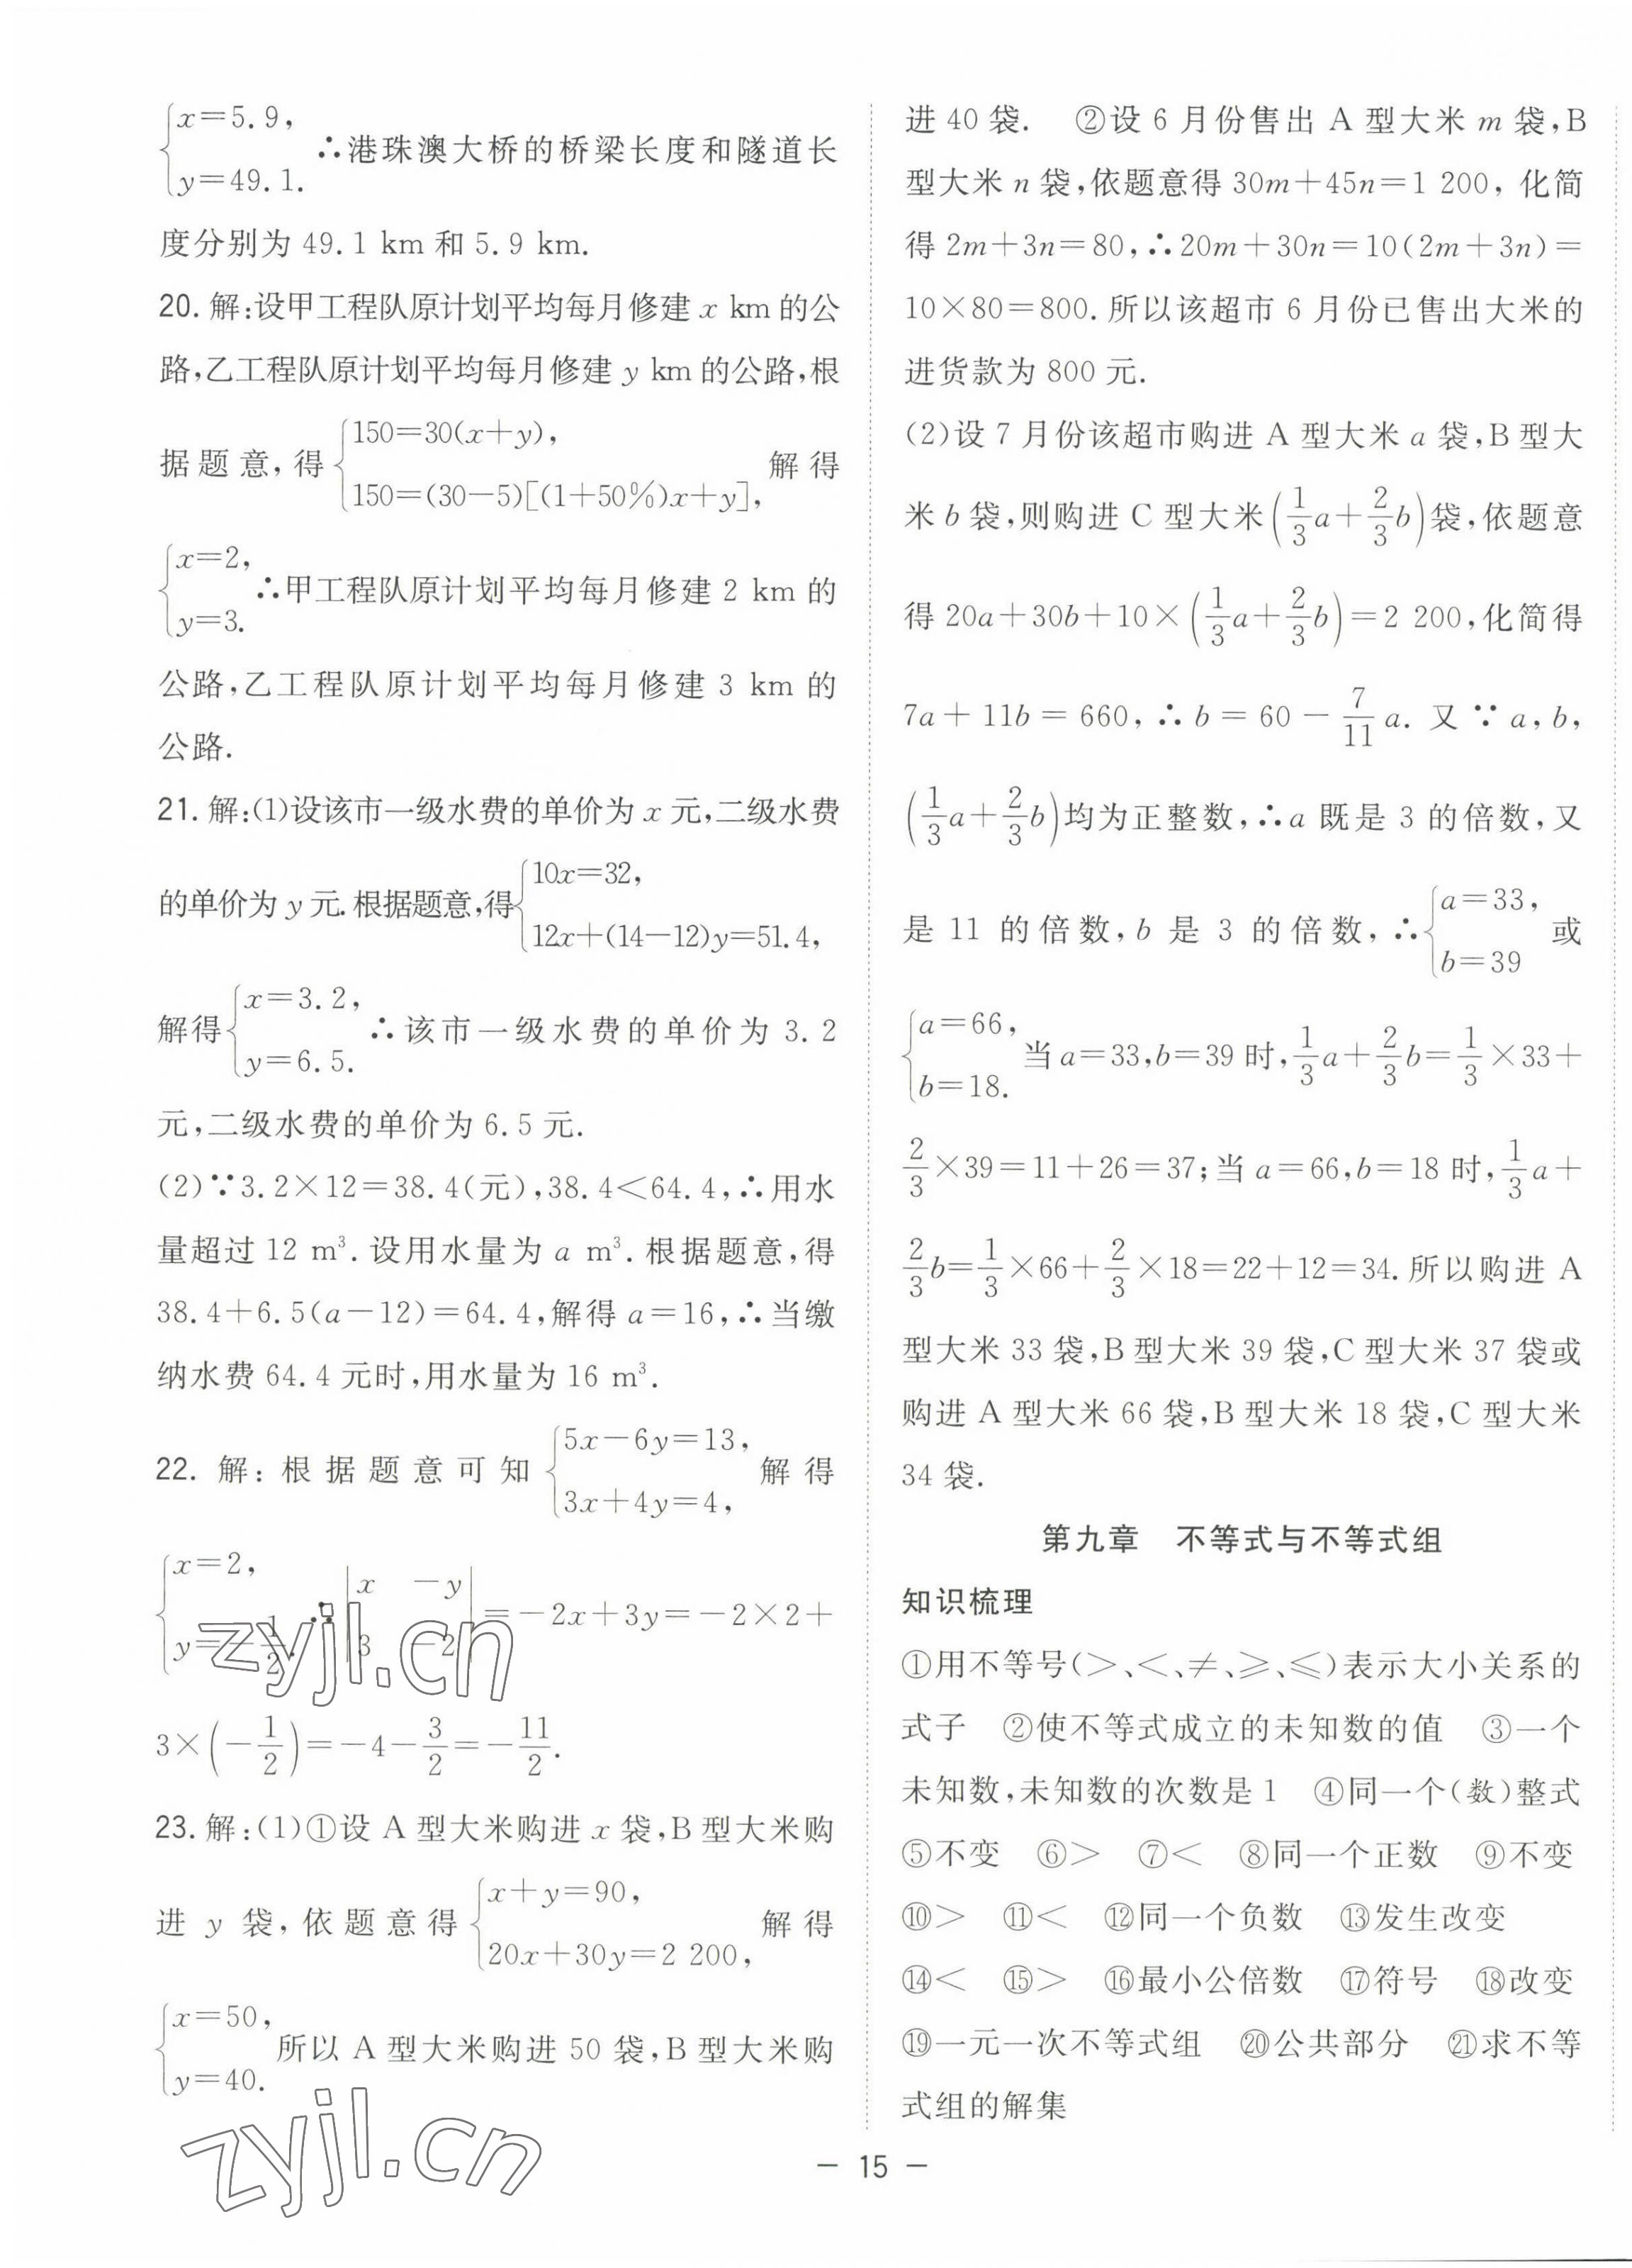 {x=5.9,
y=49.1. ∴港珠澳大桥的桥梁长度和隧道长
度分别为 49.1 km 和 5.9 km.
20. 解:设甲工程队原计划平均每月修建 x km 的公
路,乙工程队原计划平均每月修建 y km 的公路,根
据题意,得 {150=30(x+y),
150=(30−5)[(1+50%)x+y], 解得
{x=2,
y=3. ∴甲工程队原计划平均每月修建 2 km 的
公路,乙工程队原计划平均每月修建 3 km 的
公路.
21. 解:(1)设该市一级水费的单价为 x 元,二级水费
的单价为 y 元.根据题意,得 {10x=32,
12x+(14−12)y=51.4,
解得 {x=3.2,
y=6.5. ∴该市一级水费的单价为 3.2
元,二级水费的单价为 6.5 元.
(2)∵3.2×12=38.4(元),38.4<64.4,∴用水
量超过 12 m³.设用水量为 a m³.根据题意,得
38.4+6.5(a−12)=64.4,解得 a=16,∴当缴
纳水费 64.4 元时,用水量为 16 m³.
22. 解:根据题意可知 {5x−6y=13,
3x+4y=4, 解得
{x=2,
y=−1/2. ∴ |x −y
3 −2| =−2x+3y=−2×2+
3×(−1/2)=−4−3/2=−11/2.
23. 解:(1)①设 A 型大米购进 x 袋,B 型大米购
进 y 袋,依题意得 {x+y=90,
20x+30y=2 200, 解得
{x=50,
y=40. 所以 A 型大米购进 50 袋,B 型大米购
进 40 袋. ②设 6 月份售出 A 型大米 m 袋,B
型大米 n 袋,依题意得 30m+45n=1 200,化简
得 2m+3n=80,∴20m+30n=10(2m+3n)=
10×80=800.所以该超市 6 月份已售出大米的
进货款为 800 元.
(2)设 7 月份该超市购进 A 型大米 a 袋,B 型大
米 b 袋,则购进 C 型大米(1/3a+2/3b)袋,依题意
得 20a+30b+10×(1/3a+2/3b)=2 200,化简得
7a+11b=660,∴b=60−7/11a.又∵a,b,
(1/3a+2/3b)均为正整数,∴a 既是 3 的倍数,又
是 11 的倍数,b 是 3 的倍数,∴{a=33,
b=39 或
{a=66,
b=18. 当 a=33,b=39 时,1/3a+2/3b=1/3×33+
2/3×39=11+26=37;当 a=66,b=18 时,1/3a+
2/3b=1/3×66+2/3×18=22+12=34.所以购进 A
型大米 33 袋,B 型大米 39 袋,C 型大米 37 袋或
购进 A 型大米 66 袋,B 型大米 18 袋,C 型大米
34 袋.
第九章 不等式与不等式组
知识梳理
①用不等号(>、<、≠、≥、≤)表示大小关系的
式子 ②使不等式成立的未知数的值 ③一个
未知数,未知数的次数是 1 ④同一个(数)整式
⑤不变 ⑥> ⑦< ⑧同一个正数 ⑨不变
⑩> ⑪< ⑫同一个负数 ⑬发生改变
⑭< ⑮> ⑯最小公倍数 ⑰符号 ⑱改变
⑲一元一次不等式组 ⑳公共部分 ㉑求不等
式组的解集
zyjl.cn
zyjl.cn
— 15 —